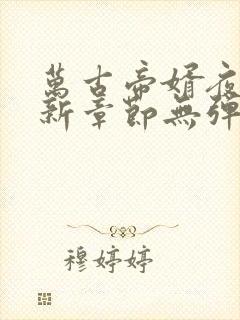 萬古帝婿夜
新章節無彈
穆婷婷